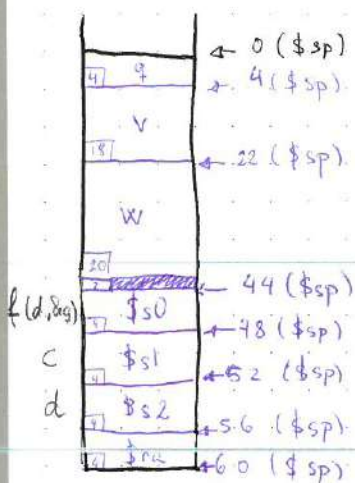 0 ($sp)
4 q 4 ($sp)
V
18 22 ($sp)
W
20
2 44 ($sp)
$s0
4 48 ($sp)
C $s1
4 52 ($sp)
d $s2
4 56 ($sp)
4 $ra 60 ($sp)